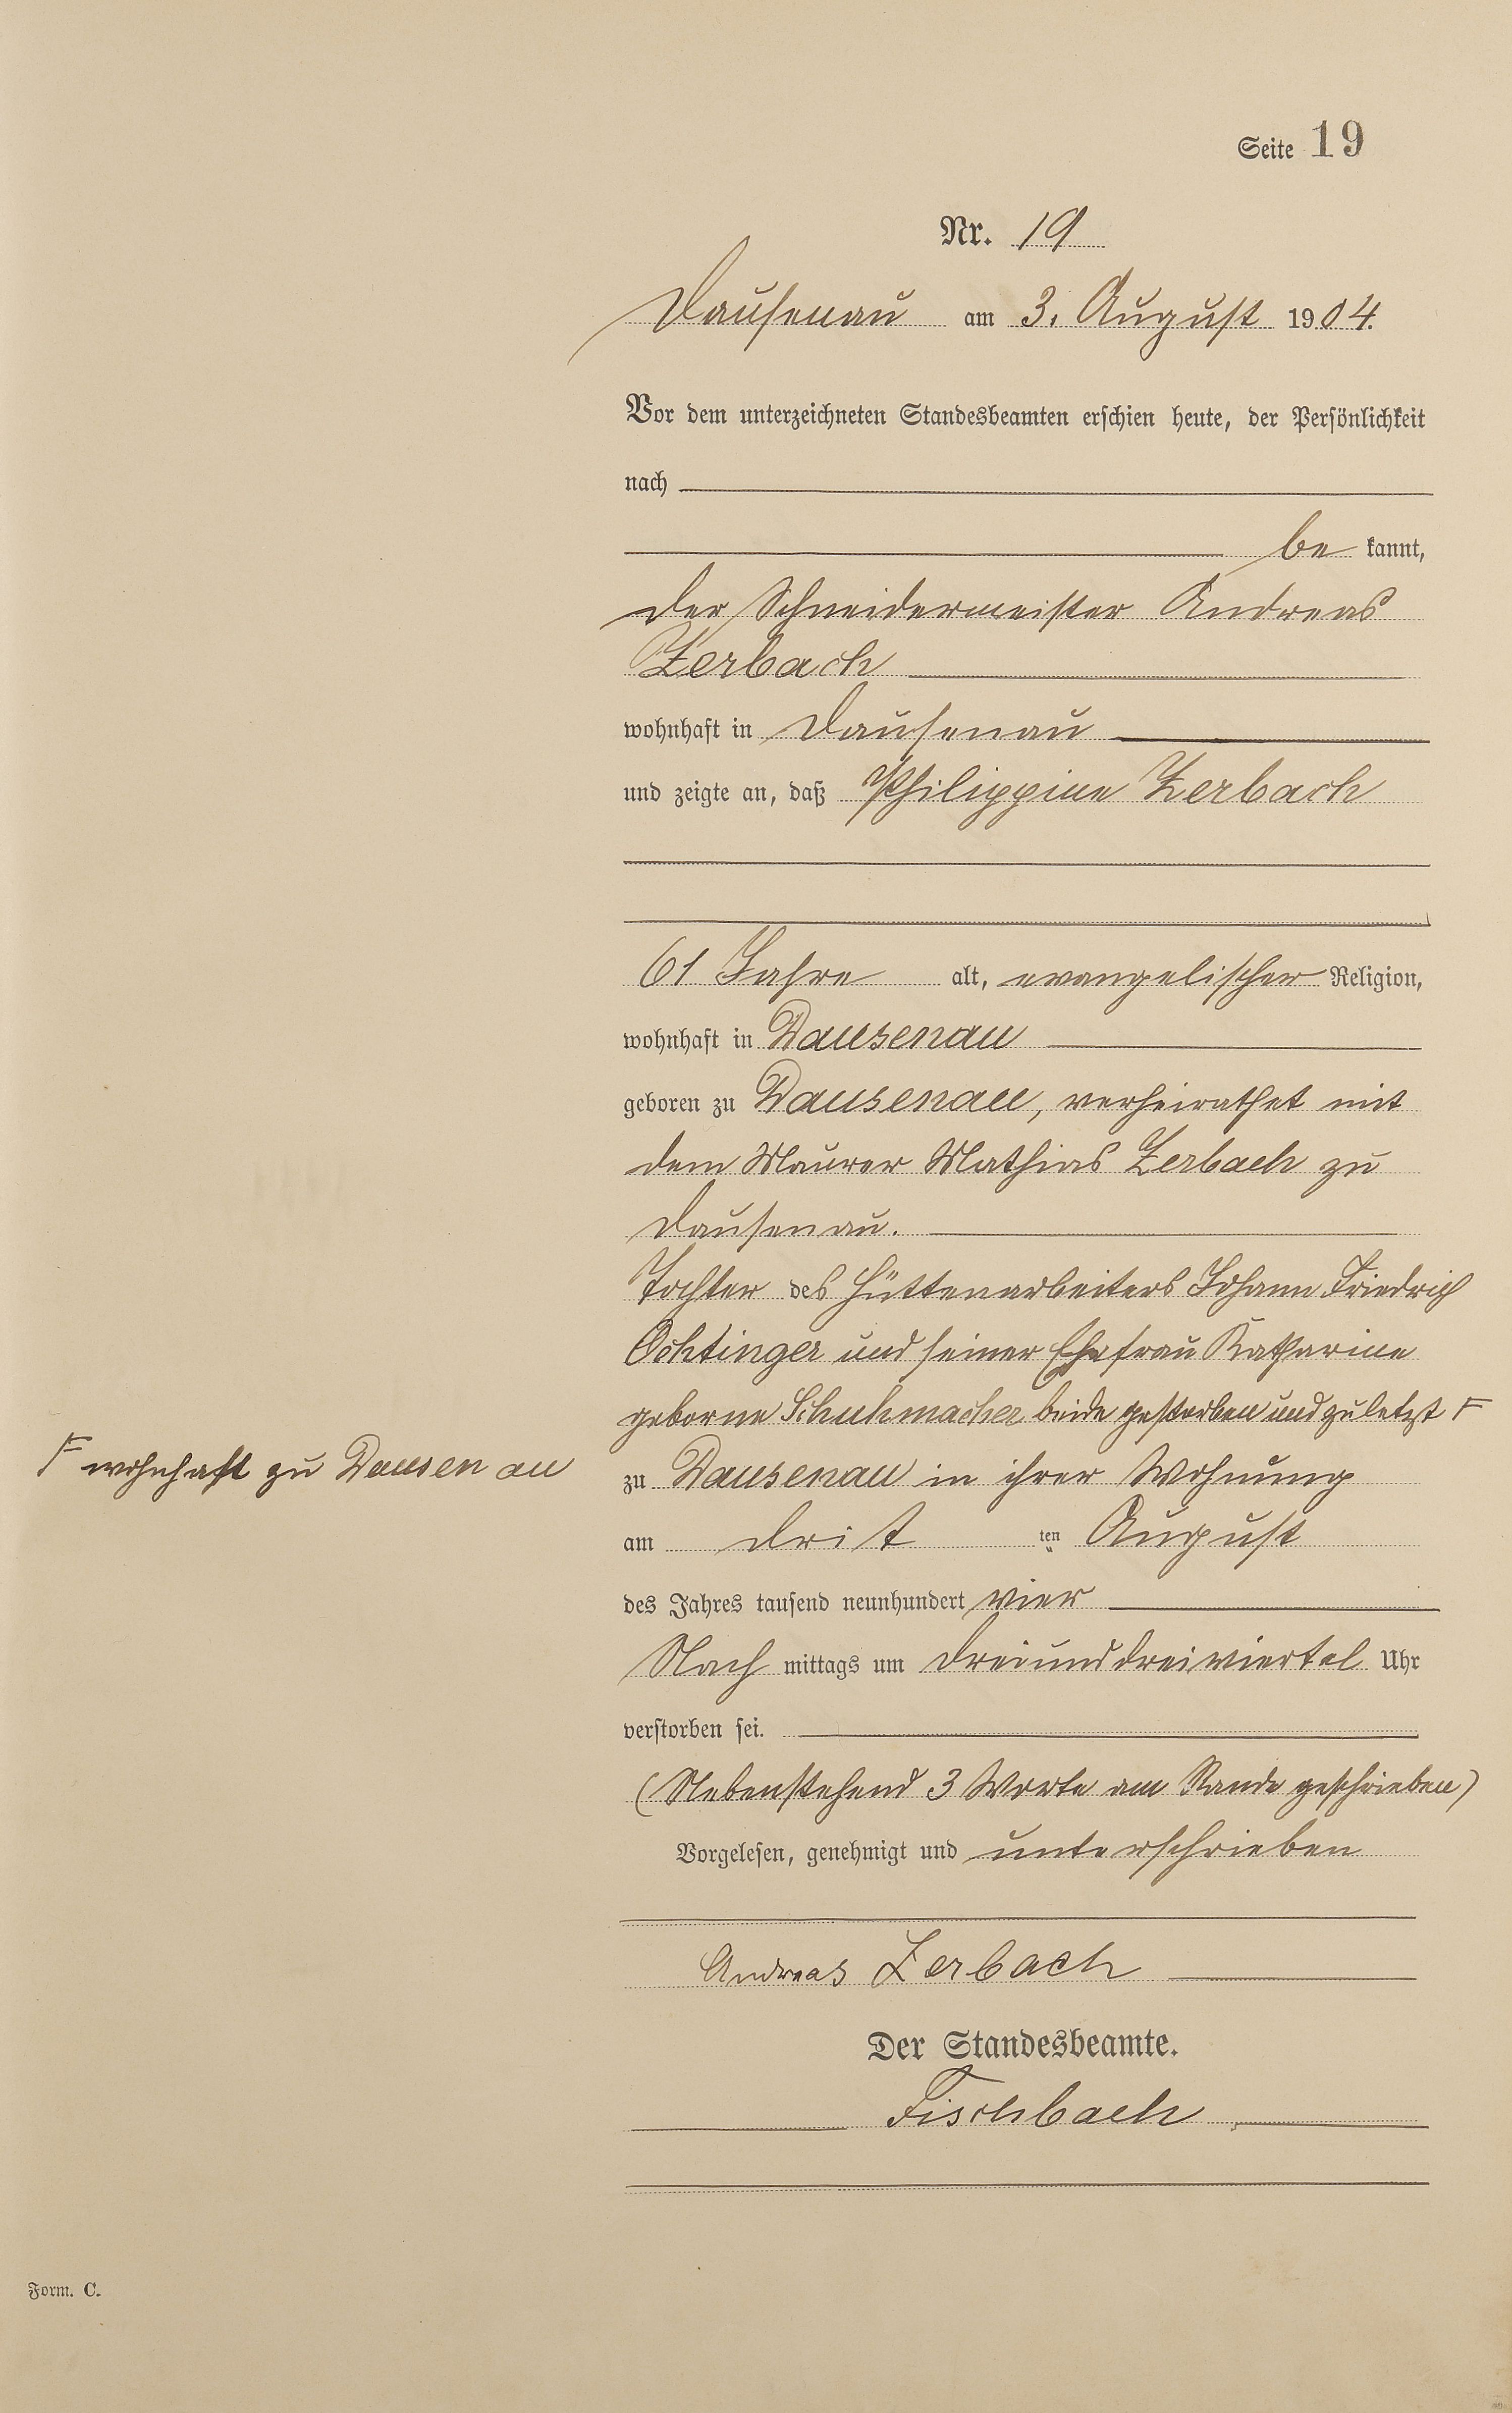 Seite 19
Nr. 19
Dausenau am 3. August 1904.
Vor dem unterzeichneten Standesbeamten erschien heute, der Persönlichkeit
nach
be kannt,
der Schneidermeister Andreas
Zerbach
wohnhaft in Dausenau
und zeigte an, daß Philippine Zerbach
61 Jahre alt, evangelischer Religion,
wohnhaft in Dausenau
geboren zu Dausenau, verheirathet mit
dem Maurer Mathias Zerbach zu
Dausenau.
Tochter des Hüttenarbeiters Johann Friedrich
Ochtinger und seiner Ehefrau Katharine
geborne Schuhmacher beide gestorben und zuletzt F
F wohnhaft zu Dausenau
zu Dausenau in ihrer Wohnung
am drit ten August
des Jahres tausend neunhundert vier
Nach mittags um dreiunddreiviertel Uhr
verstorben sei.
(Nebenstehend 3 Worte am Rande geschrieben)
Vorgelesen, genehmigt und unterschrieben
Andreas Zerbach
Der Standesbeamte.
Fischbach
Form. C.